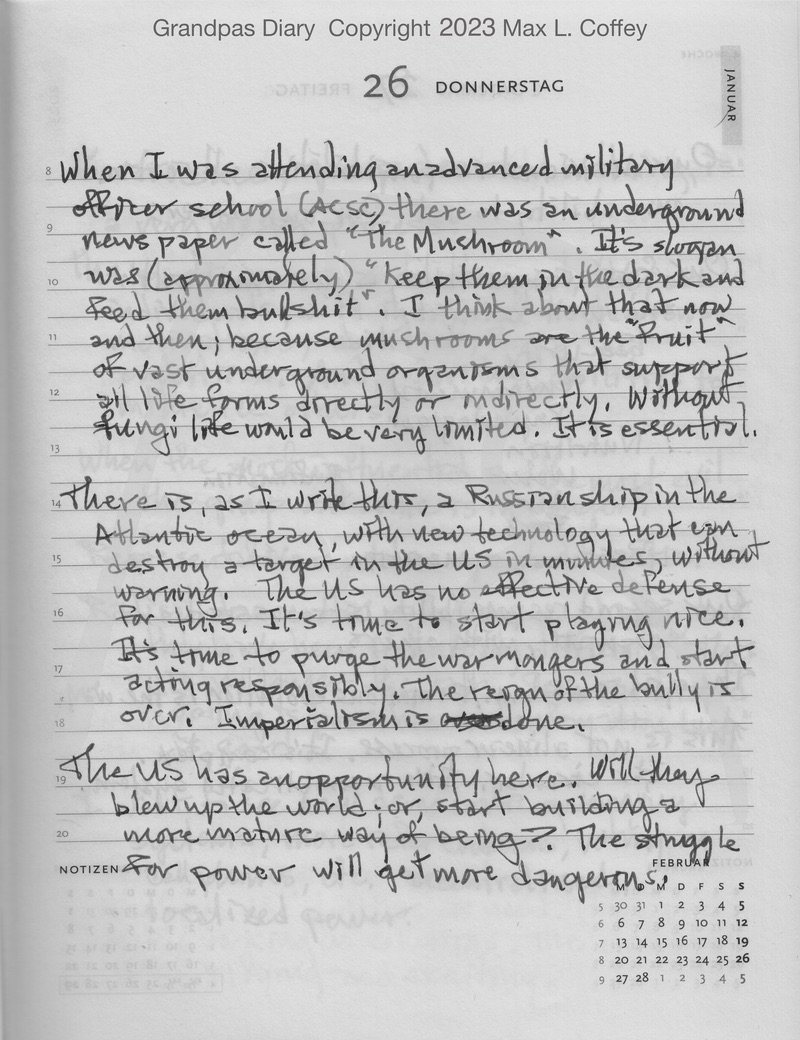 Grandpas Diary Copyright 2023 Max L. Coffey
26 DONNERSTAG
JANUAR
8 When I was attending an advanced military
officer school (ACSC) there was an underground
9 news paper called "The Mushroom". It's slogan
10 was (approximately) "Keep them in the dark and
feed them bullshit". I think about that now
11 and then; because mushrooms are the "fruit"
of vast underground organisms that support
12 all life forms directly or indirectly. Without
fungi life would be very limited. It is essential.
13
14 There is, as I write this, a Russian ship in the
Atlantic ocean, with new technology that can
15 destroy a target in the US in minutes, without
warning. The US has no effective defense
16 for this. It's time to start playing nice.
It's time to purge the warmongers and start
17 acting responsibly. The reign of the bully is
18 over. Imperialism is done.
19 The US has an opportunity here. Will they
blew up the world; or, start building a
20 more mature way of being?. The struggle
NOTIZEN for power will get more dangerous.
FEBRUAR
M D M D F S S
5 30 31 1 2 3 4 5
6 6 7 8 9 10 11 12
7 13 14 15 16 17 18 19
8 20 21 22 23 24 25 26
9 27 28 1 2 3 4 5